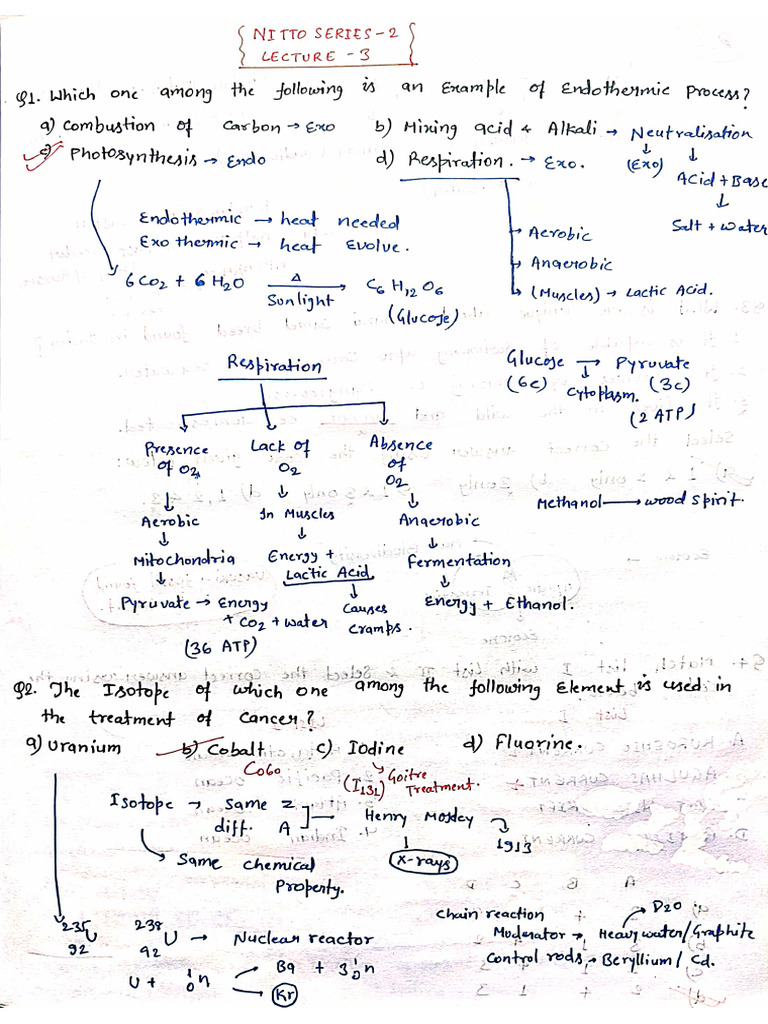 NITTO SERIES-2
LECTURE-3
Q1. Which one among the following is an Example of Endothermic Process?
a) Combustion of Carbon → Exo b) Mixing acid & Alkali → Neutralisation
c) Photosynthesis → Endo d) Respiration. → Exo. (Exo) Acid + Base
Salt + Water
Endothermic → heat needed
Exothermic → heat Evolve.
→ Aerobic
→ Anaerobic
→ (Muscles) → Lactic Acid.
6CO2 + 6H2O Δ Sunlight → C6H12O6
(Glucose)
Respiration
Glucose → Pyruvate
(6c) Cytoplasm. (3c)
(2 ATP)
Presence of O2 Lack of O2 Absence of O2
Methanol → wood spirit.
Aerobic In Muscles Anaerobic
Mitochondria Energy + Lactic Acid Fermentation
Pyruvate → Energy + CO2 + water Causes cramps. Energy + Ethanol.
(36 ATP)
Q2. The Isotope of which one among the following Element is used in
the treatment of Cancer?
a) Uranium b) Cobalt c) Iodine d) Fluorine.
Co60 (I131) Goitre Treatment.
Isotope → Same Z
diff. A → Henry Mosley → 1913
X-rays
→ Same chemical
Property.
Chain reaction → D2O
235 92 U 238 92 U → Nuclear reactor Moderator → Heavy water/Graphite
Control rods → Beryllium/Cd.
U + 1 0 n → Ba + 3 1 0 n
Kr